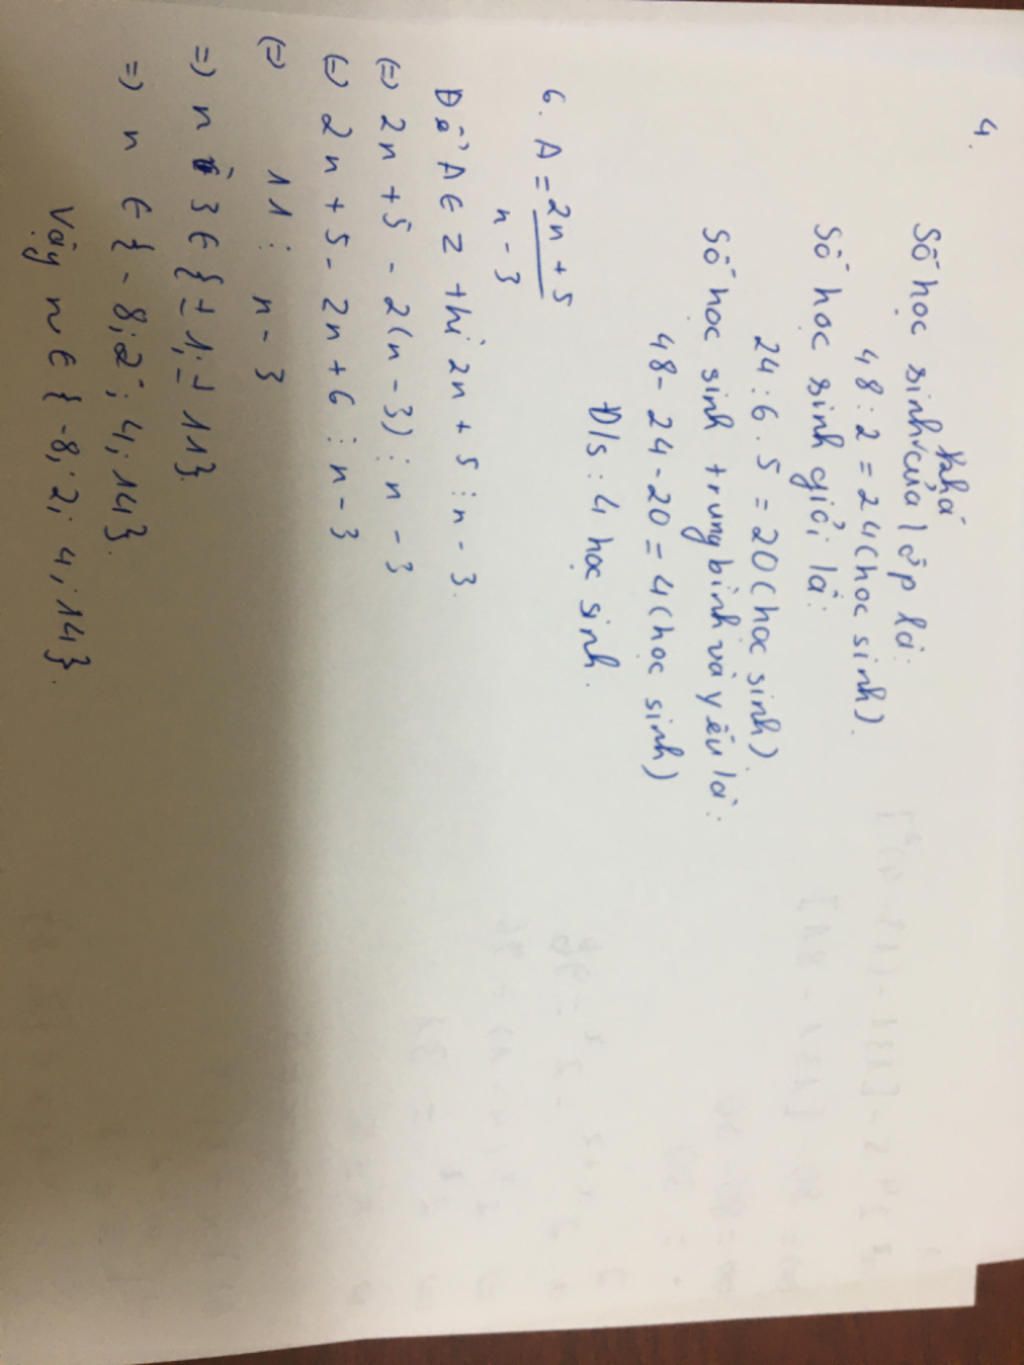 4.
Số học sinh khá của lớp là:
48 : 2 = 24 (học sinh).
Số học sinh giỏi là:
24 : 6 . 5 = 20 (học sinh)
Số học sinh trung bình và yếu là:
48 - 24 - 20 = 4 (học sinh)
Đ/s : 4 học sinh.
6. A = 2n + 5 / n - 3
Để A ∈ Z thì 2n + 5 ⋮ n - 3.
(=) 2n + 5 - 2(n - 3) ⋮ n - 3
(=) 2n + 5 - 2n + 6 ⋮ n - 3
(=) 11 ⋮ n - 3
=) n - 3 ∈ {±1; ±11}.
=) n ∈ {-8; 2; 4; 14}.
Vậy n ∈ {-8; 2; 4; 14}.